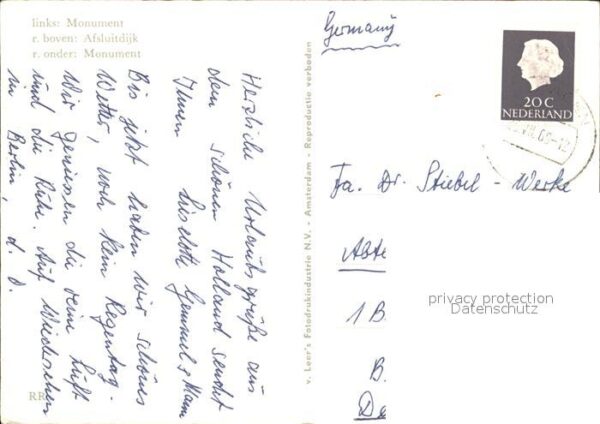 links: Monument
r. boven: Afsluitdijk
r. onder: Monument
Herzliche Urlaubsgrüße aus
dem schönen Holland sendet
Ihnen Liselotte
Bis jetzt haben wir schönes
Wetter, noch kein Regentag.
Wir geniessen die reine Luft
und die Ruhe. Auf Wiedersehen
in Berlin, d. O.
RR
v. Leer's Fotodrukindustrie N.V. - Amsterdam - Reproductie verboden
Germany
20 C
NEDERLAND
Fa. Dr. Stiebel - Werke
Abte
1 B
B.
De
privacy protection
Datenschutz